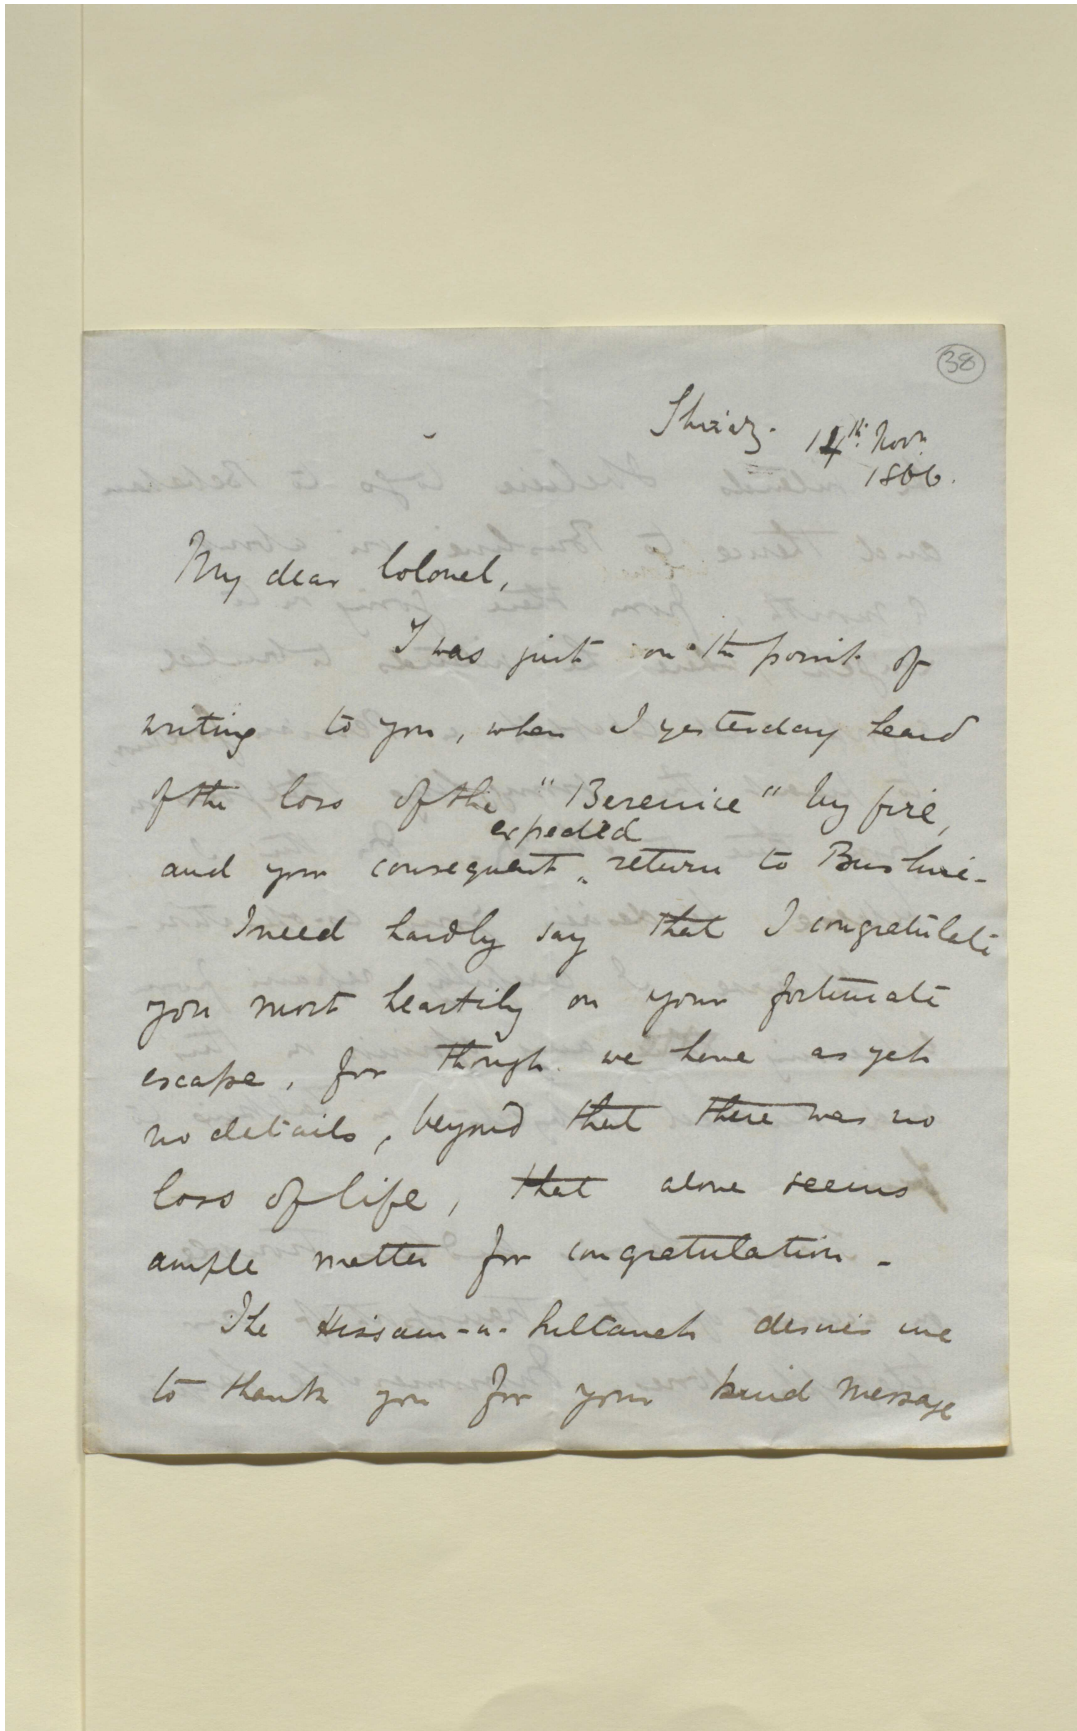 38
Shiráz. 14th. Novr.
1866.
My dear Colonel,
I was just on the point of
writing to you, when I yesterday heard
of the loss of the "Berenice" by fire,
expected
and your consequent return to Bushire -
I need hardly say that I congratulate
you most heartily on your fortunate
escape, for though we have as yet
no details, beyond that there was no
loss of life, that alone seems
ample matter for congratulation -
The Hissam-u-Sultaneh desires me
to thank you for your kind message